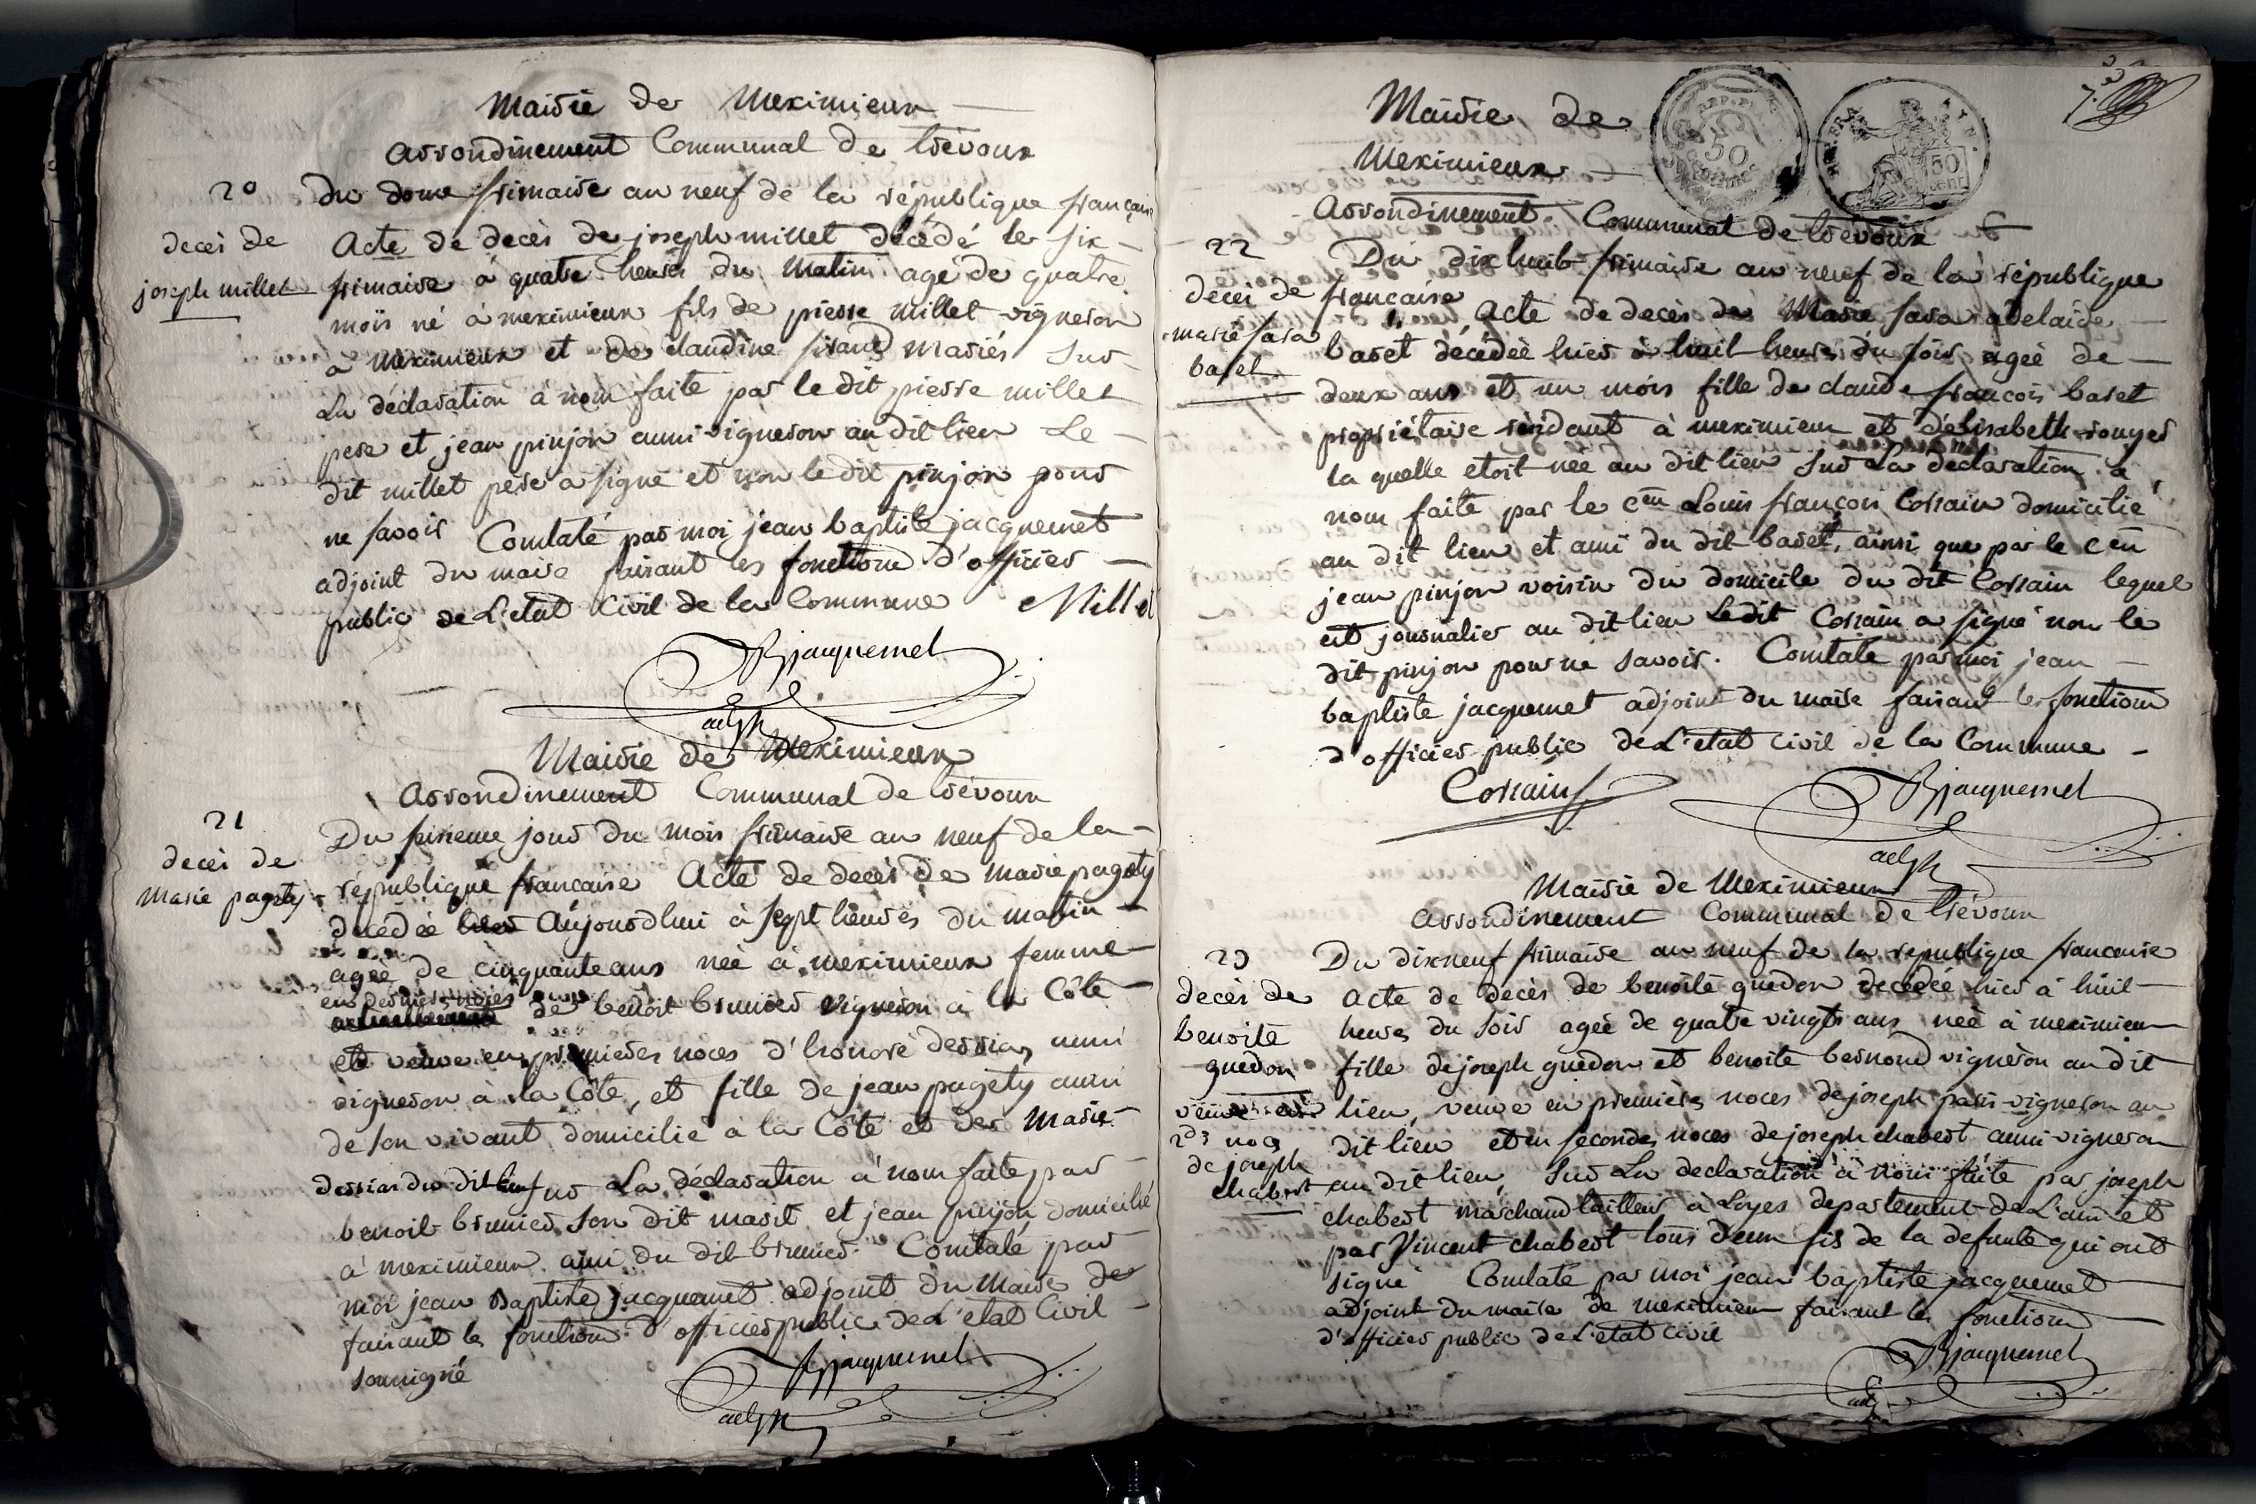 Mairie de Meximieux
arrondinement Communal de trévoux
20
du douze frimaire an neuf de la république française
decès de
joseph millet
Acte de decès de joseph millet décédé le six
frimaire à quatre heures du Matin agé de quatre
mois né à meximieux fils de pierre millet vigneron
à Meximieux et de claudine sirand mariés sur
La déclaration à nous faite par le dit pierre millet
pere et jean pinjon aussi vigneron au dit lieu Le
dit millet pere a signé et non le dit pinjon pour
ne savoir Constaté par moi jean baptiste jacquemet
adjoint du maire faisant les fonctions d'officier
public de L'etat Civil de la Commune Millet
Bjacquemet
adjt
Mairie de Meximieux
arrondinement Communal de trévoux
21
decès de
Marie pagety
Du seizieme jour du mois frimaire an neuf de la
république francaise Acte de decès de Marie pagety
décédée hier Aujourdhui à sept heures du matin
agée de cinquante ans née à meximieux femme
en dernieres noces de benoit brunier vigneron à la Côte
et veuve en premieres noces d'honoré derrias aussi
vigneron à la Côte, et fille de jean pagety aussi
de son vivant domicilié à la Côte et de Marie
derrias du dit lieu sur La déclaration à nous faite par
benoit brunier son dit marit et jean pinjon domicilié
à meximieux ami du dit brunier. Constaté par
moi jean Baptiste jacquemet adjoint du Maire de
faisant les fonctions d'officier public de L'etat Civil
soussigné
Bjacquemet
adjt
Mairie de
Meximieux
REP. FRA.
50
50
cent
Arrondinement Communal de trévoux
22
decès de
marie sara
baset
Du dix huit frimaire an neuf de la république
française Acte de decès de Marie sara adelaide
baset décédée hier à huit heures du soir agée de
deux ans et un mois fille de claude françois baset
propriétaire résidant à meximieux et d'élisabeth rouyer
la quelle etoit née au dit lieu sur La declaration à
nous faite par le cen Louis françois Corrain domicilié
au dit lieu et ami du dit baset, ainsi que par le cen
jean pinjon voisin du domicile du dit Corrain lequel
est journalier au dit lieu Le dit Corrain a signé non le
dit pinjon pour ne savoir. Constaté par moi jean
baptiste jacquemet adjoint du maire faisant les fonctions
d'officier public de L'etat civil de la Commune
Corrain
Bjacquemet
adjt
Mairie de Meximieux
arrondinement Communal de trévoux
23
decès de
benoite
guedon
veuve en
2des noces
de joseph
chabert
Du dix neuf frimaire an neuf de la republique francaise
acte de decès de benoite guedon décédée hier à huit
heures du soir agée de quatre vingts ans née à meximieux
fille de joseph guedon et benoite bernond vigneron au dit
lieu, veuve en premieres noces de joseph paris vigneron au
dit lieu et en secondes noces de joseph chabert aussi vigneron
au dit lieu, sur La declaration à nous faite par joseph
chabert marchand tailleur à Loyes departement de L'ain et
par Vincent chabert tous deux fils de la defunte qui ont
signé Constaté par moi jean baptiste jacquemet
adjoint du maire de meximieux faisant les fonctions
d'officier public de L'etat civil
Bjacquemet
adjt